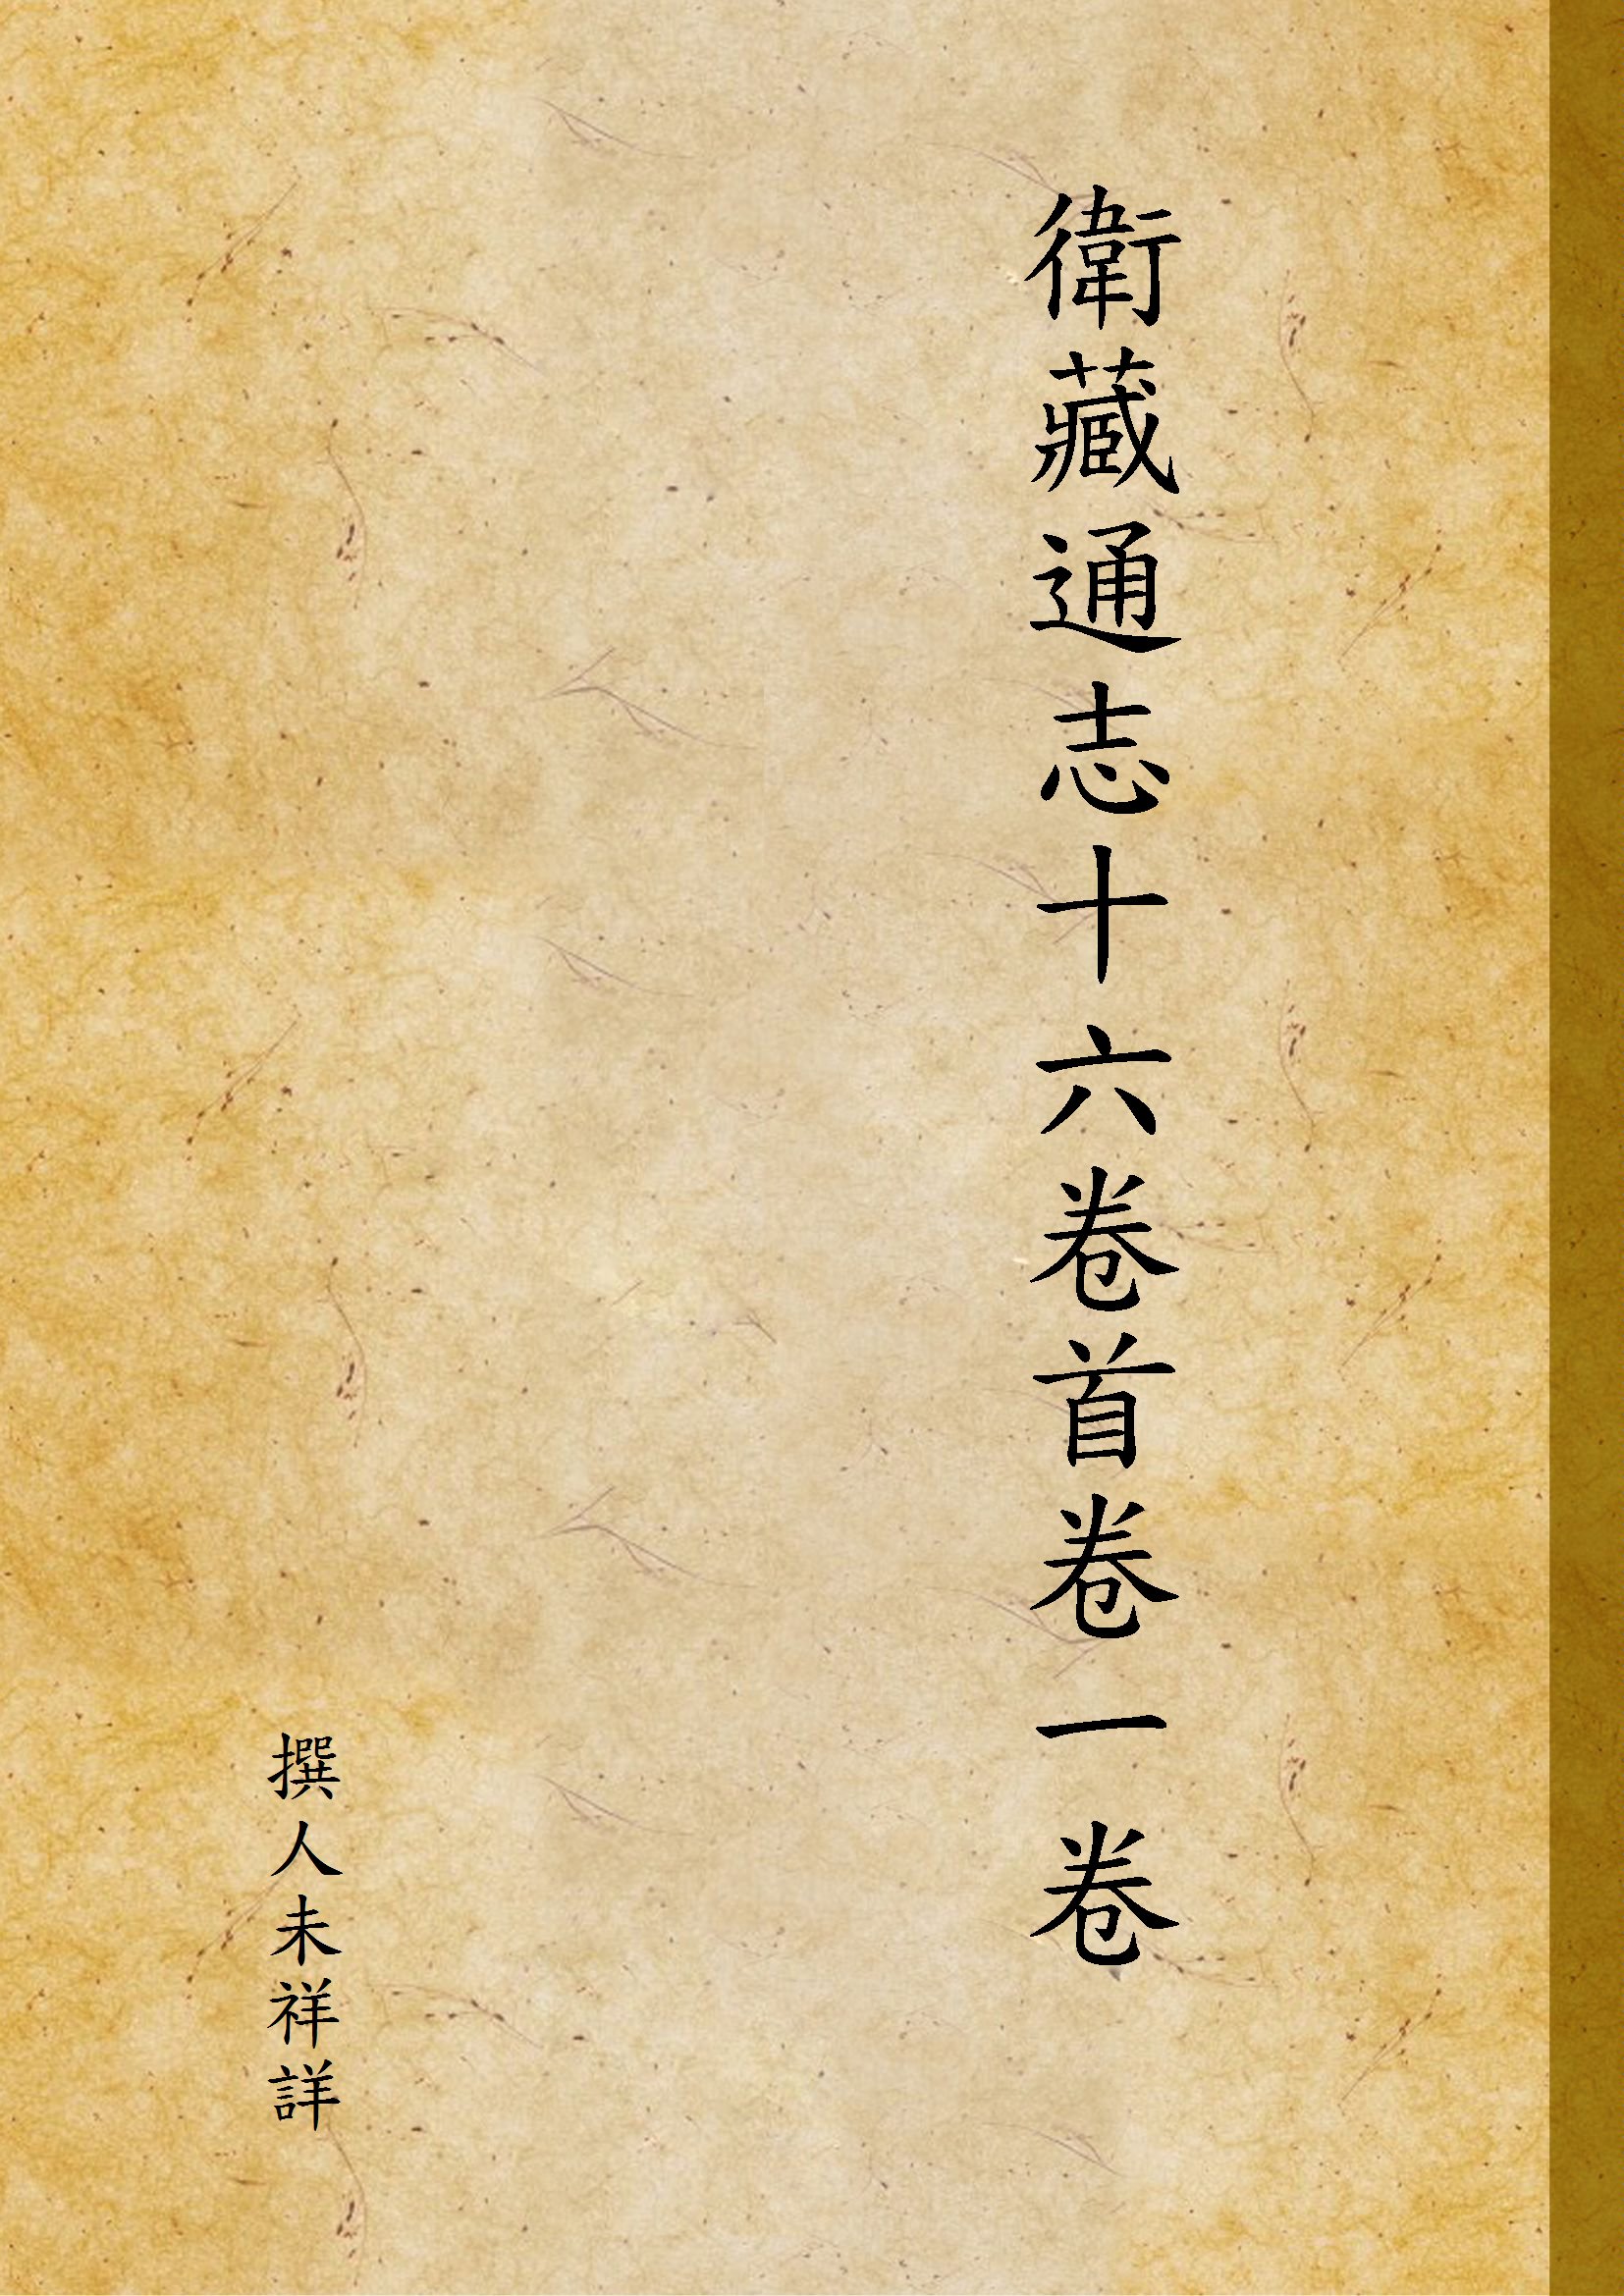 衛藏通志十六卷首卷一卷
撰人未祥詳